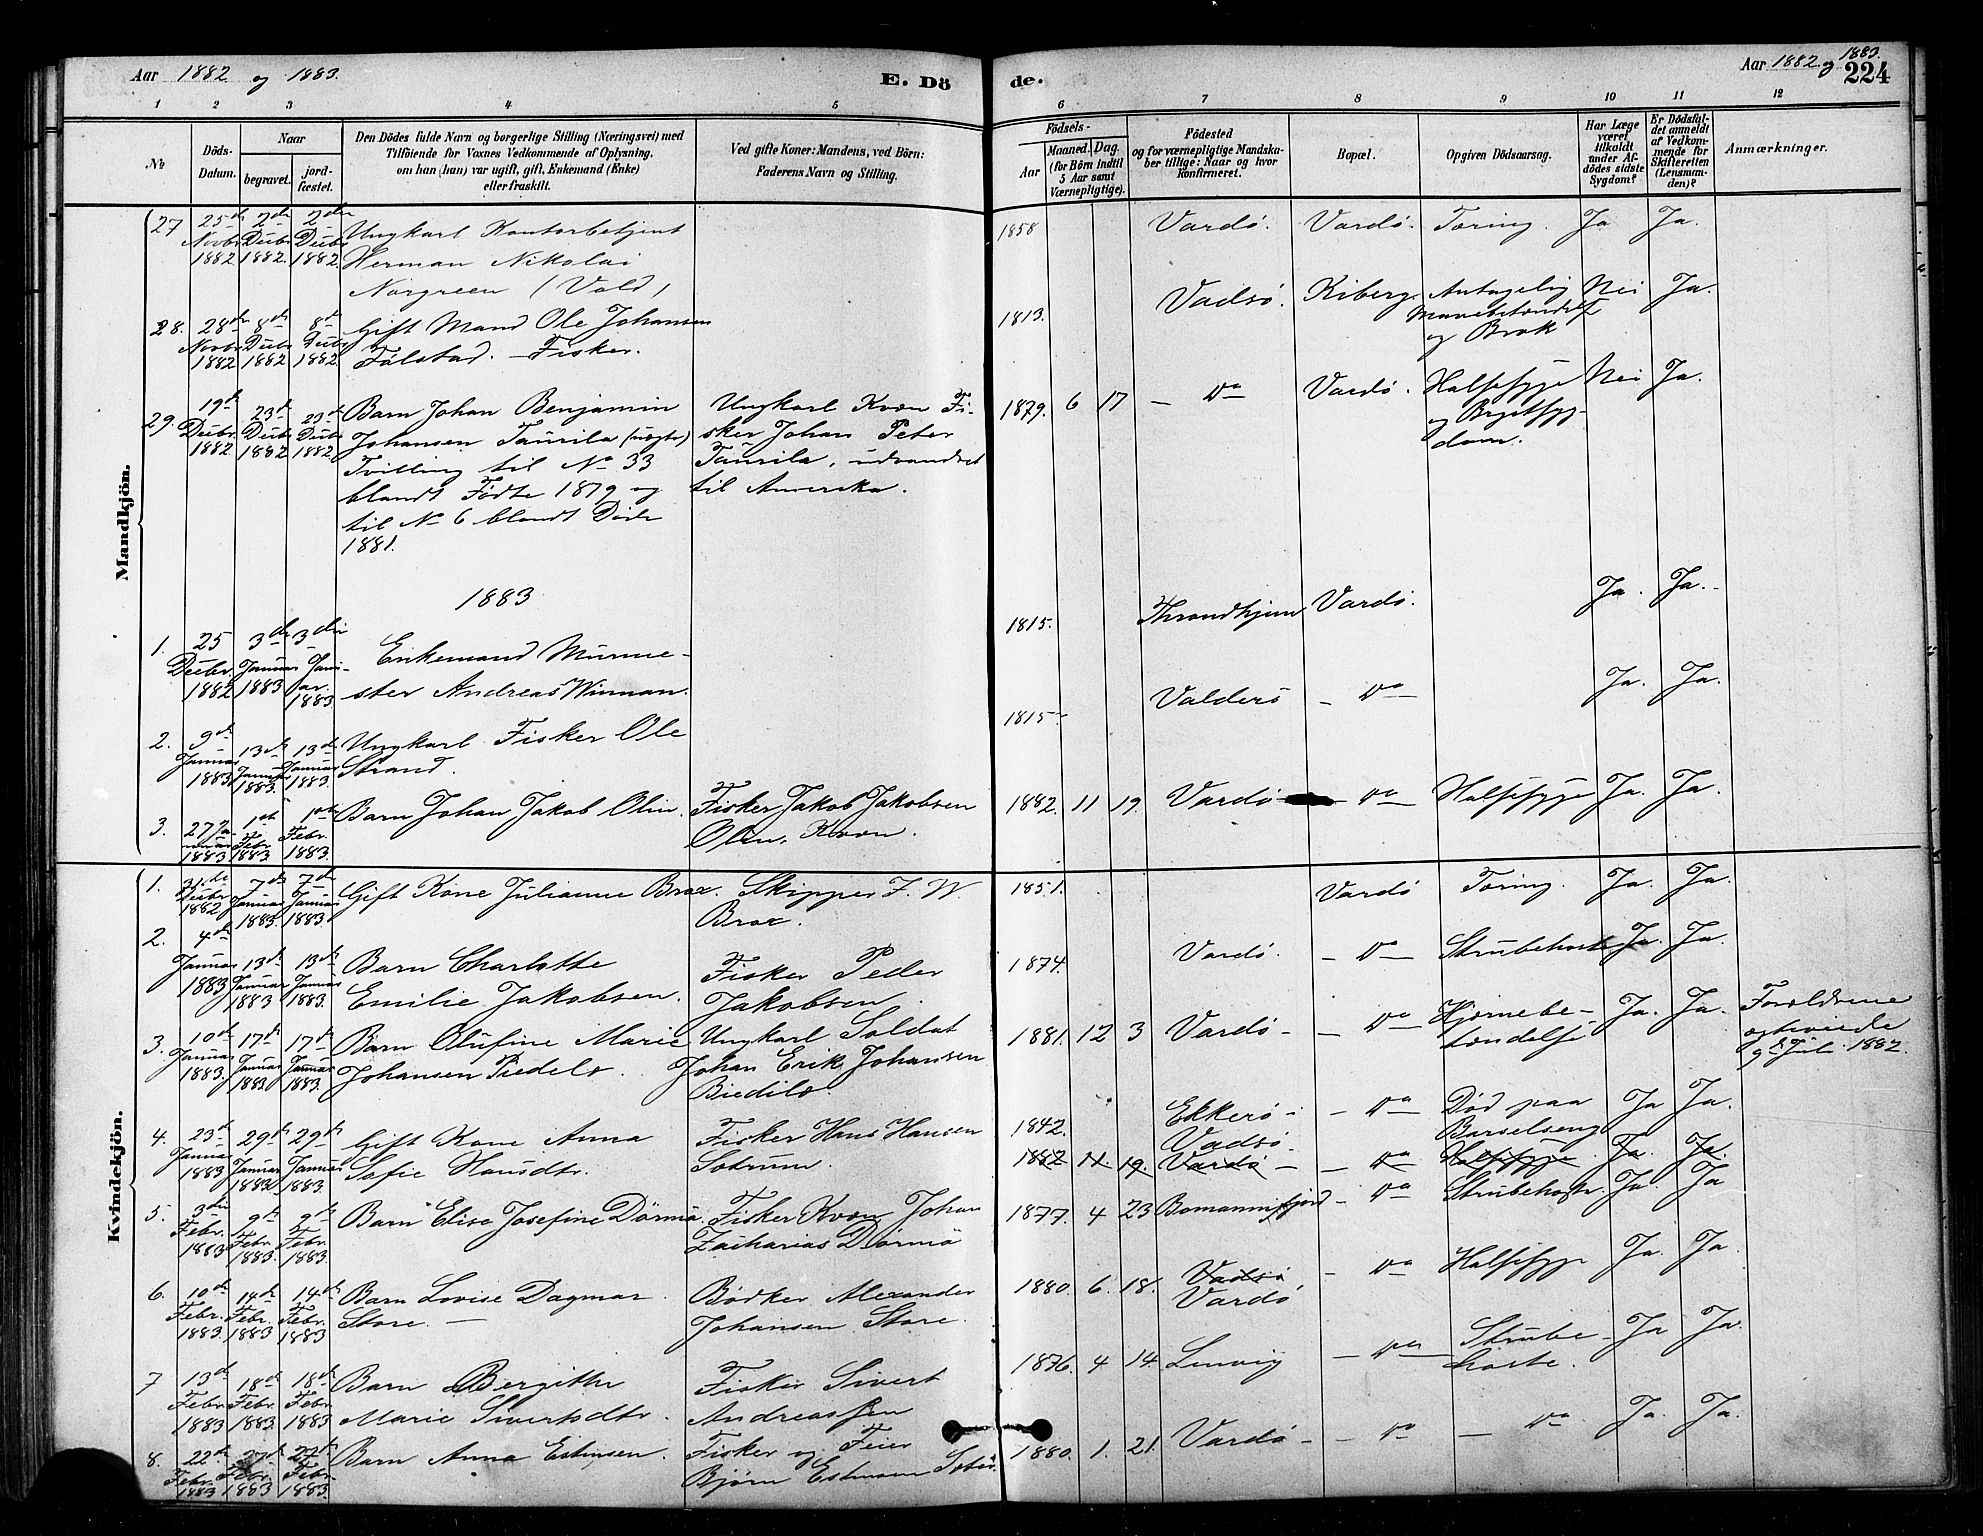 Aar 1882 og 1883.
E. Dö
de.
Aar 1882 og 1883.
224
1 2 3 4 5 6 7 8 9 10 11 12
No
Döds-
Datum.
Naar
begravet.
jord-
fæstet.
Den Dödes fulde Navn og borgerlige Stilling (Næringsvei) med
Tilföiende for Voxnes Vedkommende af Oplysning,
om han (hun) var ugift, gift, Enkemand (Enke)
eller fraskilt.
Ved gifte Koner: Mandens, ved Börn:
Faderens Navn og Stilling.
Födsels-
Aar
Maaned. Dag.
(for Börn indtil
5 Aar samt
Værnepligtige).
Födested
og for værnepligtige Mandska-
ber tillige: Naar og hvor
konfirmeret.
Bopæl.
Opgiven Dödsaarsag.
Har Læge
været
tilkaldt
under Af-
dödes sidste
Sygdom?
Er Dödsfal-
det anmeldt
af Vedkom-
mende for
Skifteretten
(Lensman-
den)?
Anmærkninger.
Mandkjön.
27 25de Novbr 1882 2den Decbr 1882. 2den Decbr 1882.
Ungkarl Kontorbetjent
Herman Nikolai
Norgreen (Vold)
1858 Vardö. Vardö. Tæring. Ja Ja.
28. 28de Novbr 1882 8de Decbr 1882 8de Decbr 1882
Gift Mand Ole Johansen
Falstad. – Fisker.
1813. Vadsö. Kiberg. Antagelig
Mavebetændelse
og Brok
Nei Ja.
29. 19de Decbr. 1882 23de Decbr 1882 23de Decbr 1882
Barn Johan Benjamin
Johansen Taurila (uægte)
Tvilling til No 33
blandt Födte 1879 og
til No 6 blandt Döde
1881.
Ungkarl Kvæn Fi-
sker Johan Peter
Taurila, udvandret
til Amerika.
1879. 6 17 – Do Vardö. Halssyge
og Brystsyg-
dom.
Nei Ja.
1883
1. 25 Decbr 1882 3die Januar 1883 3die Janu-
ar 1883
Enkemand Murme-
ster Andreas Winnan.
1815. Throndhjem Vardö. Ja. Ja.
2. 9de Januar 1883 13de Januar 1883. 13de Januar 1883.
Ungkarl Fisker Ole
Strand.
1815 Valderö – Do Ja. Ja.
3. 27 Ja-
nuar 1883 1ste Febr. 1883 1ste Febr. 1883.
Barn Johan Jakob Olin
Fisker Jakob Jakobsen
Olin, Kvæn.
1882. 11 19. Vardö – Do Halssyge Ja. Ja.
Kvindekjön.
1. 31te Decbr 1882 7de Januar 1883. 7de Januar 1883.
Gift Kone Julianne Brox.
Skipper J. W.
Brox.
1851. Vardö Tæring. Ja. Ja.
2. 4de Januar 1883 13de Januar 1883 13de Januar 1883.
Barn Charlotte
Emilie Jakobsen.
Fisker Peder
Jakobsen.
1874. Vardö. – Do – Strubehoste Ja. Ja.
3. 10de Januar 1883. 17de Januar 1883 17de Januar 1883.
Barn Olufine Marie
Johansen Piedelæ.
Ungkarl Soldat
Johan Erik Johansen
Biedilæ.
1881. 12 3 Vardö – – Do Hjernebe-
tændelse
Ja. Ja.
Forældrene
ægteviede
9de Juli 1882.
4. 23de Januar 1883 29de Januar 1883. 29de Januar 1883.
Gift Kone Anna
Sofie Hansdtr.
Fisker Hans Hansen
Sotrum.
1842. Ekkerö –
Vadsö.
– Do – Död paa
Barselseng
Ja Ja.
1882 11. 19. Vardö – – Do Halssyge. Ja. Ja.
5. 3die Febr. 1883 9de Febr. 1883. 9de Febr. 1883
Barn Elise Josefine Dörmä.
Fisker Kvæn Johan
Zacharias Dörmö
1877. 4 23 Bomannsfjord – Do Strubehoste Ja. Ja
6. 10de Febr. 1883. 14de Febr. 1883 14de Febr. 1883
Barn Lovise Dagmar
Store. –
Bödker Alexander
Johansen Store.
1880. 6. 18. Vadsö,
Vardö
– Do Halssyge Ja. Ja.
7 13de Febr. 1883 18de Febr. 1883. 18de Febr. 1883
Barn Bergitte
Marie Sivertsdtr.
Fisker Sivert
Andreassen
1876. 4 14. Lenvig – Do – Strube-
hoste.
Ja Ja.
8. 22de Febr. 1883 27de Febr. 1883 27de Febr. 1883.
Barn Anna Estensen.
Fisker og Feier
Bjørn Estensen
1880. 1. 21. Vardö – – Do – Do Ja. Ja.